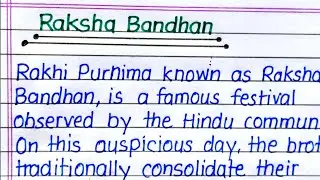 Raksha Bandhan
Rakhi Purnima known as Raksha
Bandhan, is a famous festival
observed by the Hindu commun
On this auspicious day, the brot
traditionally consolidate their